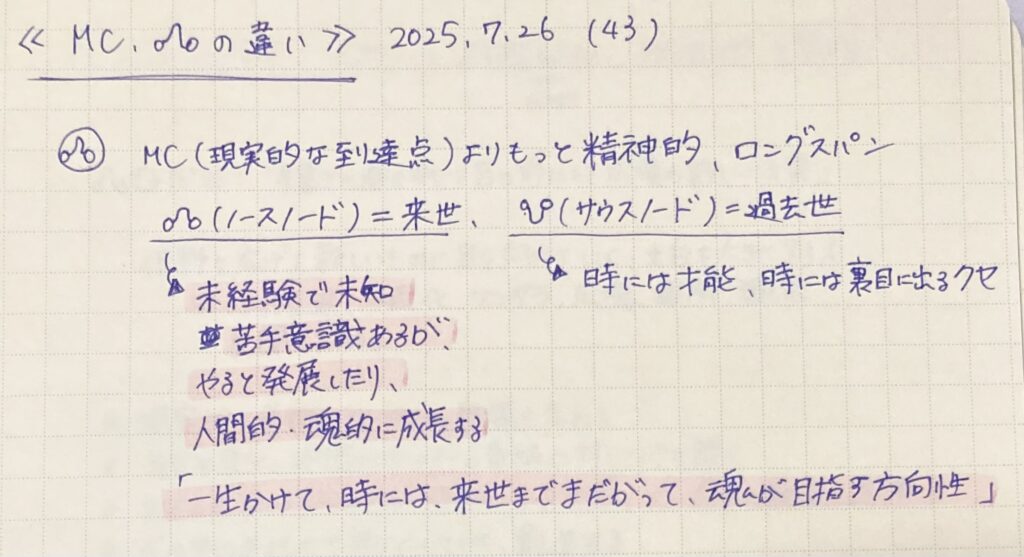 ≪ MC、☊の違い ≫ 2025.7.26 (43)
☊ MC(現実的な到達点)よりもっと精神的、ロングスパン
☊(ノースノード)=来世、 ☋(サウスノード)=過去世
↳ 未経験で未知 ↳ 時には才能、時には裏目に出るクセ
苦手意識あるが、
やると発展したり、
人間的・魂的に成長する
「一生かけて、時には、来世までまだがって、魂が目指す方向性」